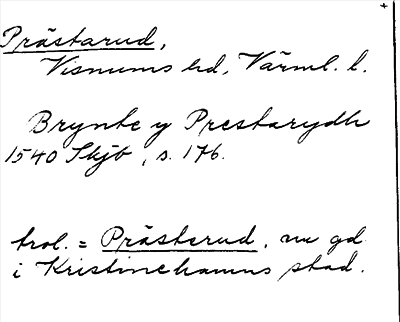 Prästarud,
Visnums hd, Värml. l.
Brynte y Prestarydh
1540 Skjb, s. 176.
trol. = Prästerud, nu gd.
i Kristinehamns stad.